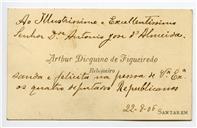 Ao Illustrissimo e Excellentissimo
Senhor Dr. Antonio José d'Almeida.
Arthur Dicquano de Figueiredo
Relojoeiro
sauda e felicita na pessoa de Vª Exª
os quatro deputados Republicanos
22-8-06
SANTAREM